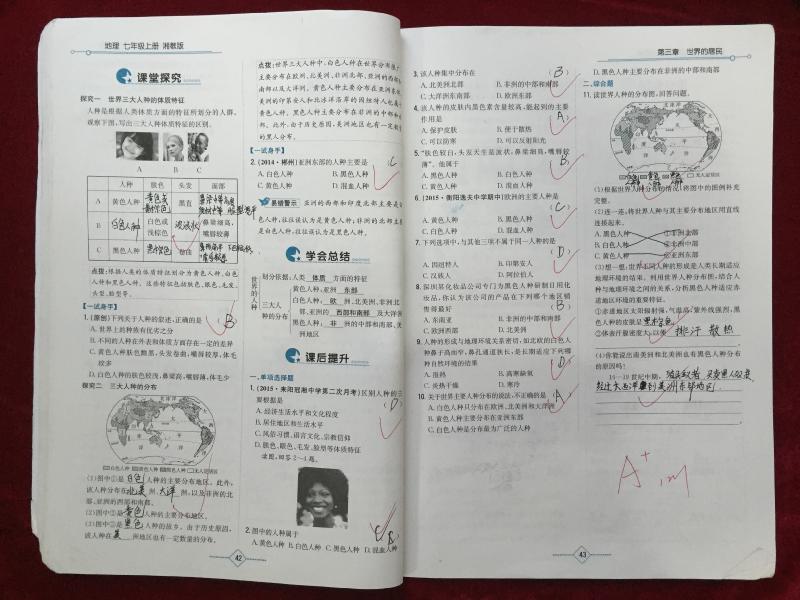 地理 七年级上册 湘教版
课堂探究
探究一 世界三大人种的体质特征
人种是根据人类体质方面的特征所划分的人群。
观察下图,写出三大人种体质特征的区别。
A B C
人种 肤色 头发 面部
A 黄色人种 黑直
B 白色人种 白色或浅棕色 波浪状 鼻梁细高,嘴唇较薄
C 黑色人种 卷曲
点拨:根据人类的体质特征划分为黄色人种、白色
人种和黑色人种。这些特征包括肤色、眼色、毛发、
头型、脸型等。
【一试身手】
1.(原创)下列关于人种的叙述,正确的是 (B)
A.世界上的种族有优劣之分
B.不同的人种在外表和体质方面存在一定的差异
C.黄色人种肤色黝黑,头发卷曲,嘴唇较厚,体毛
较多
D.白色人种的肤色较浅,鼻梁高,嘴唇薄,体毛少
探究二 三大人种的分布
(1)图中①是白色人种的主要分布地区。此外,
该人种分布在北美洲、大洋洲,以及非洲的北
部、亚洲的西部和南部。
(2)图中②是黄色人种的主要分布地区。
(3)图中③是黑色人种的故乡。由于历史原因,
该人种在美洲地区也有一定数量的分布。
42
点拨:世界三大人种中,白色人种在世界分布最广,
主要分布在欧洲、北美洲、非洲北部、亚洲的西部和
南部以及大洋洲。黄色人种主要分布在亚洲东部,
美洲的印第安人和北冰洋沿岸的因纽特人也属于
黄色人种。黑色人种主要分布在非洲的中部和南
部。此外,由于历史原因,美洲地区也有一定数量
的黑人分布。
【一试身手】
2.(2014·郴州)亚洲东部的人种主要是 (C)
A.白色人种 B.黑色人种
C.黄色人种 D.混血人种
易错警示 亚洲的西部和印度北部主要是白
色人种,往往误认为是黄色人种;非洲的北部主要是白
色人种,往往误认为是黑色人种。
学会总结
世界的人种
划分依据:人类 体质 方面的特征
三大人种的分布
黄色人种:亚洲 东部
白色人种:欧 洲、北美洲、非洲北
部、亚洲的 西部和南部 及大洋洲
黑色人种:非 洲的中部和南部、美
洲地区
课后提升
一、单项选择题
1.(2015·耒阳冠湘中学第二次月考)区别人种的主
要根据是 (D)
A.经济生活水平和文化程度
B.居住地区和生活水平
C.风俗习惯、语言文化、宗教信仰
D.肤色、眼色、毛发、脸型等体质特征
读图,回答2~4题。
2.图中的人种属于
A.黄色人种 B.白色人种 C.黑色人种 D.混血人种
第三章 世界的居民
3.该人种集中分布在 (B)
A.北美洲和欧洲 B.非洲的中部和南部
C.大洋洲东南部 D.欧洲东部
4.该人种的皮肤内黑色素含量较高,能起到的主要
作用是 (A)
A.保护皮肤 B.便于散热
C.可以防寒 D.可以反射阳光
5.“肤色较白,头发天生是波状,鼻梁细高,嘴唇较
薄”,他属于 (B)
A.黄色人种 B.白色人种
C.黑色人种 D.混血人种
6.(2015·衡阳逸夫中学期中)欧洲的主要人种是
(C)
A.黄色人种 B.黑色人种
C.白色人种 D.混血人种
7.下列选项中,与其他三项不属于同一人种的是
(D)
A.因纽特人 B.印第安人
C.汉族人 D.阿拉伯人
8.深圳某化妆品公司专门为黑色人种研制日用化
妆品,你认为该公司的产品在下列哪个地区销
售得最好 (B)
A.东南亚 B.非洲的中部和南部
C.欧洲西部 D.北美洲
9.人种的形成与地理环境关系密切,如北欧的白色人
种鼻子高而窄,鼻孔通道狭长,是长期适应下列哪
种自然环境的结果 (D)
A.湿热 B.高寒缺氧
C.炎热干燥 D.寒冷
10.关于世界主要人种分布的说法,不正确的是 (A)
A.白色人种只分布在欧洲、北美洲和大洋洲
B.黄色人种主要分布在亚洲东部
C.白色人种是分布最为广泛的人种
D.黑色人种主要分布在非洲的中部和南部
二、综合题
11.读世界人种的分布图,回答问题。
(1)根据世界人种分布的情况,将图中的图例补充
完整。
(2)连一连:将世界人种与其主要分布地区用直线
连接起来。
A.黑色人种 ①非洲北部
B.白色人种 ②亚洲东部
C.黄色人种 ③非洲中部
(3)想一想:世界不同人种的形成是人类长期适应
地理环境的结果。利用世界人种分布图,结合人
种与地理环境之间的关系,分析黑色人种适应赤
道地区环境的重要特征。
①赤道地区太阳辐射强,气温高,紫外线强烈,黑
色人种的皮肤是黑棕色。
②体表汗腺密度大,以利 排汗散热
(4)你能说出南美洲和北美洲也有黑色人种分布
的原因吗?
A+
43